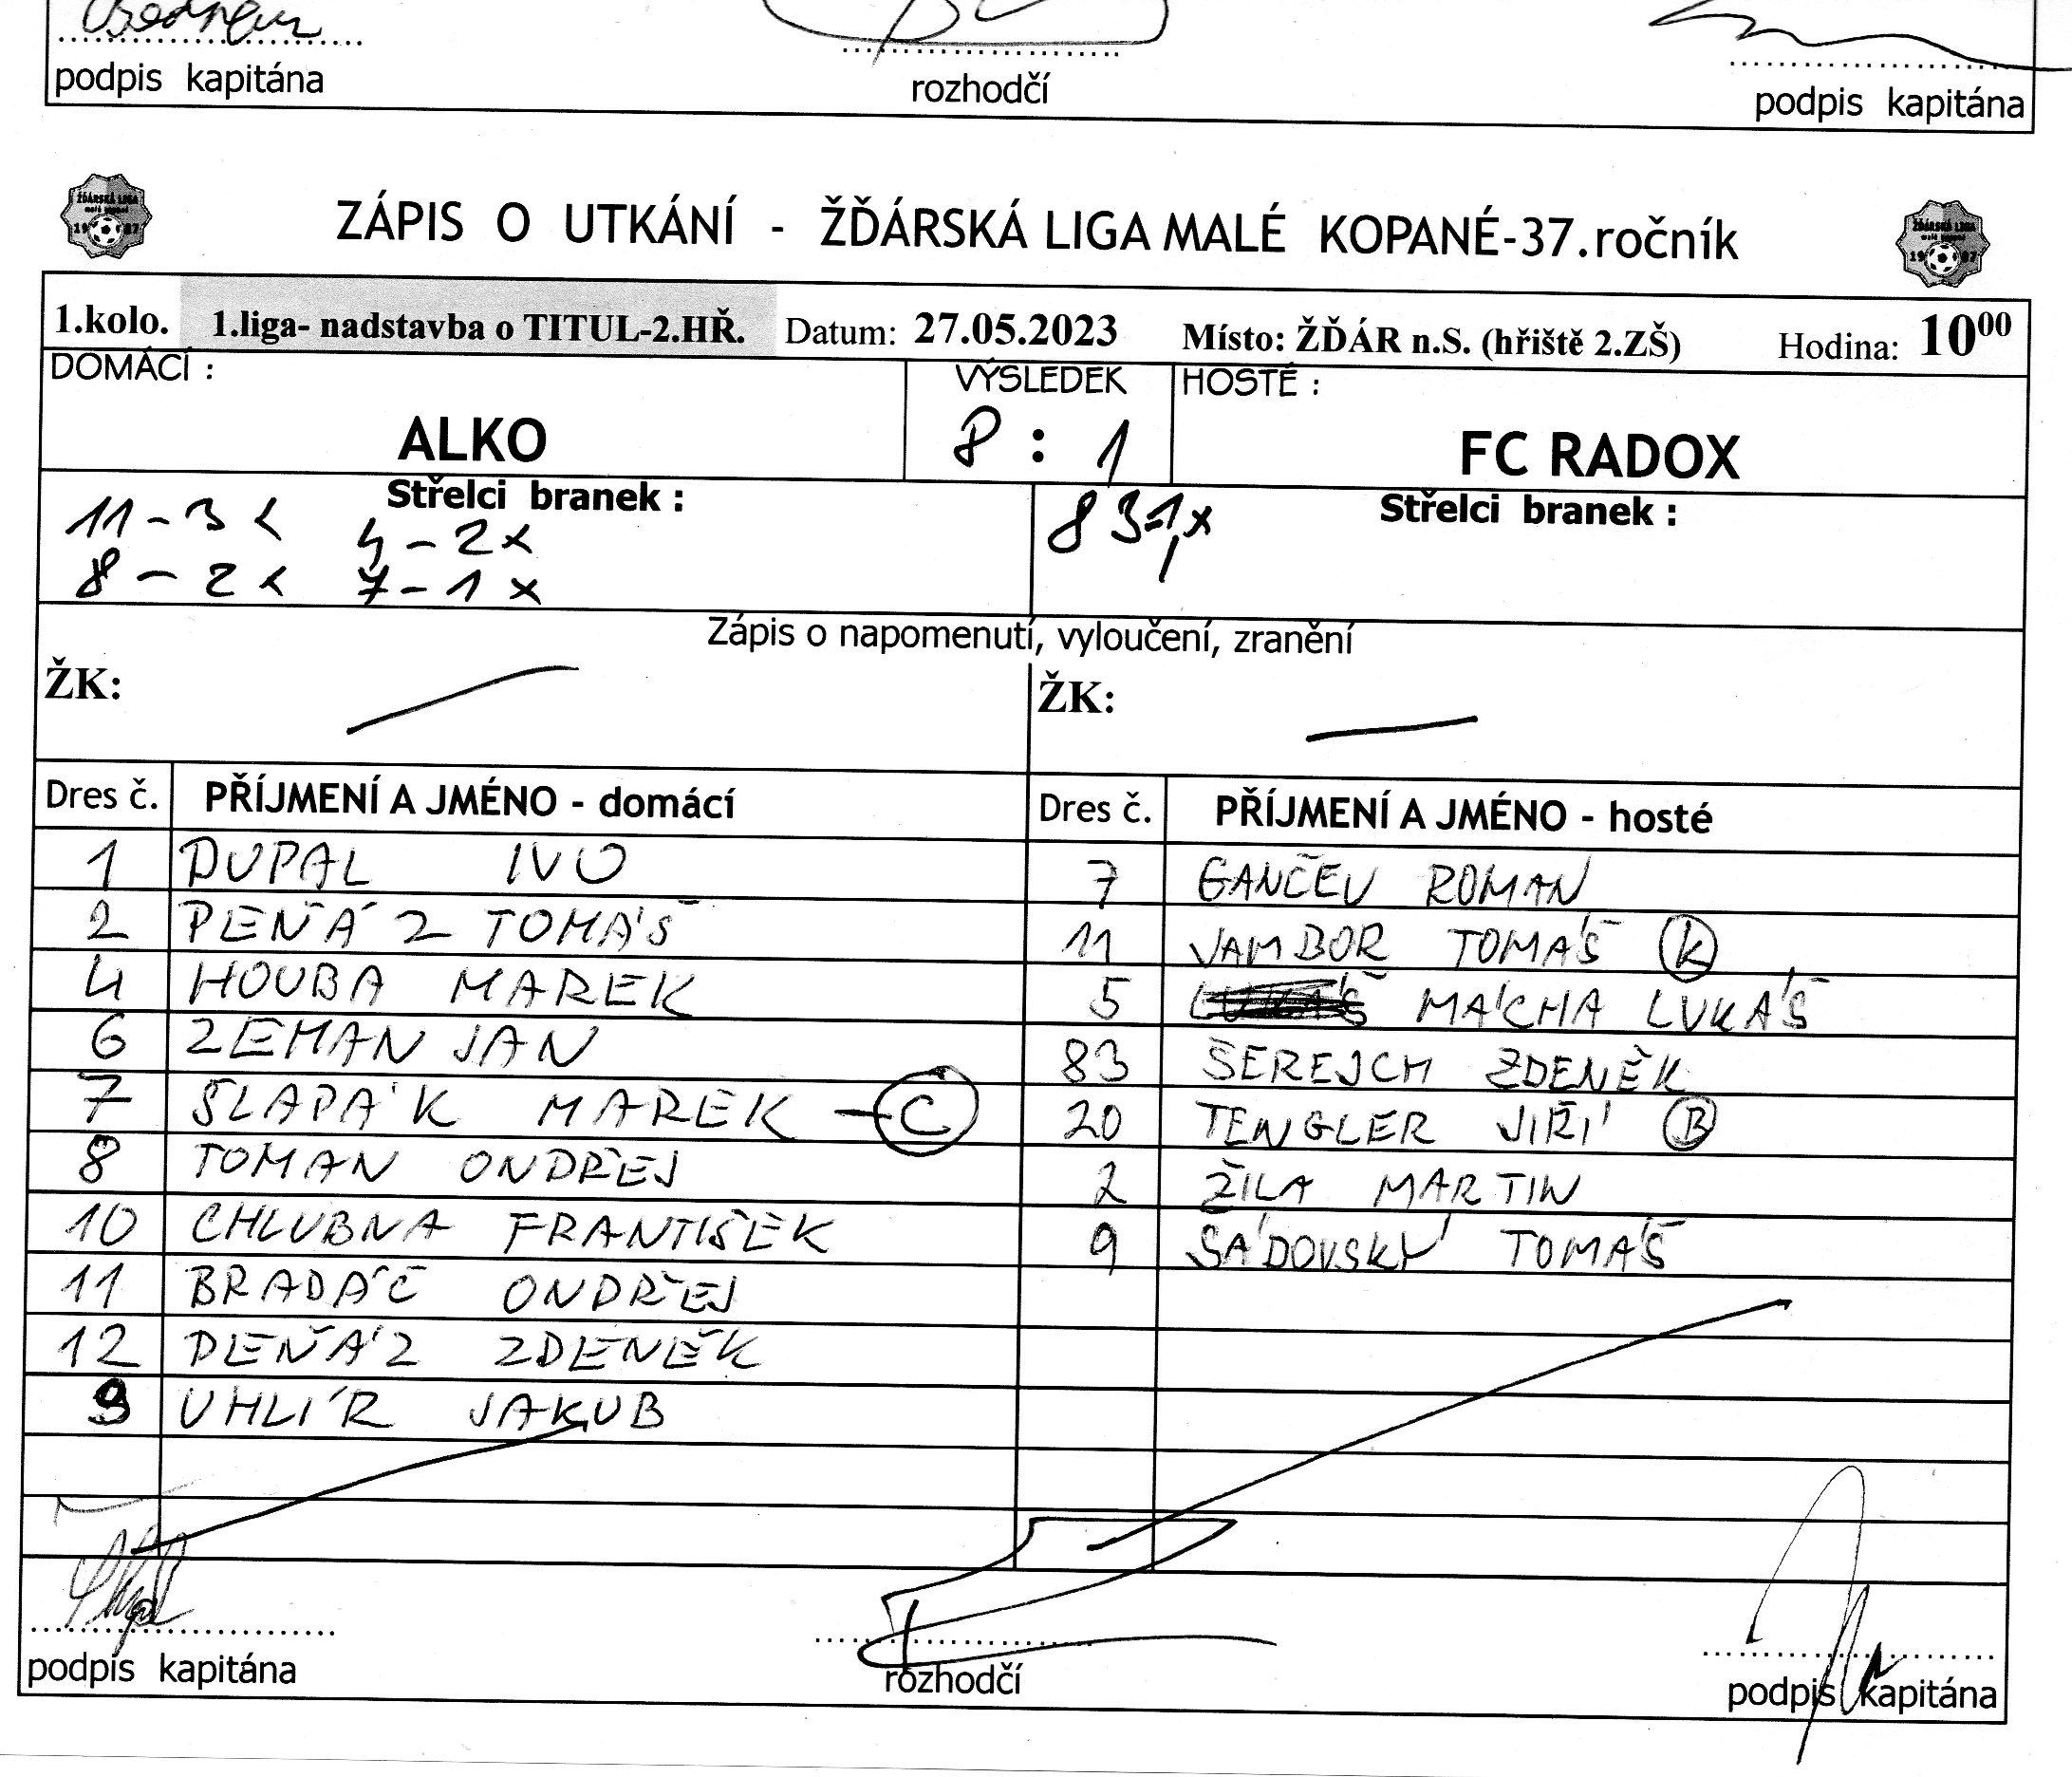 podpis kapitána rozhodčí podpis kapitána
ŽĎÁRSKÁ LIGA
malé kopané
19 87
ZÁPIS O UTKÁNÍ - ŽĎÁRSKÁ LIGA MALÉ KOPANÉ-37.ročník
ŽĎÁRSKÁ LIGA
malé kopané
19 87
1.kolo. 1.liga- nadstavba o TITUL-2.HŘ. Datum: 27.05.2023 Místo: ŽĎÁR n.S. (hřiště 2.ZŠ) Hodina: 10⁰⁰
DOMÁCÍ : VÝSLEDEK HOSTÉ :
ALKO 8 : 1 FC RADOX
Střelci branek : Střelci branek :
11-3x 4-2x 83-1x
8-2x 7-1x
Zápis o napomenutí, vyloučení, zranění
ŽK: ŽK:
Dres č. PŘÍJMENÍ A JMÉNO - domácí Dres č. PŘÍJMENÍ A JMÉNO - hosté
1 DUPAL IVO 7 GANČEV ROMAN
2 PEŇÁZ TOMÁŠ 11 VAMBOR TOMÁŠ K
4 HOUBA MAREK 5 MÁCHA LUKÁŠ
6 ZEMAN JAN 83 ŠEREJCH ZDENĚK
7 SLAPÁK MAREK - C 20 TENGLER JIŘÍ B
8 TOMAN ONDŘEJ 2 ŽILA MARTIN
10 CHLUBNA FRANTIŠEK 9 SÁDOVSKÝ TOMÁŠ
11 BRADÁČ ONDŘEJ
12 PEŇÁZ ZDENĚK
9 UHLÍŘ JAKUB
podpis kapitána rozhodčí podpis kapitána